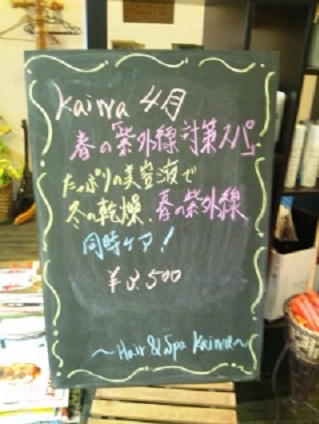 Kaina 4月
春の紫外線対策スパ
たっぷりの美容液で
冬の乾燥、春の紫外線
同時ケア!
¥3,500
～Hair & Spa Kaina～